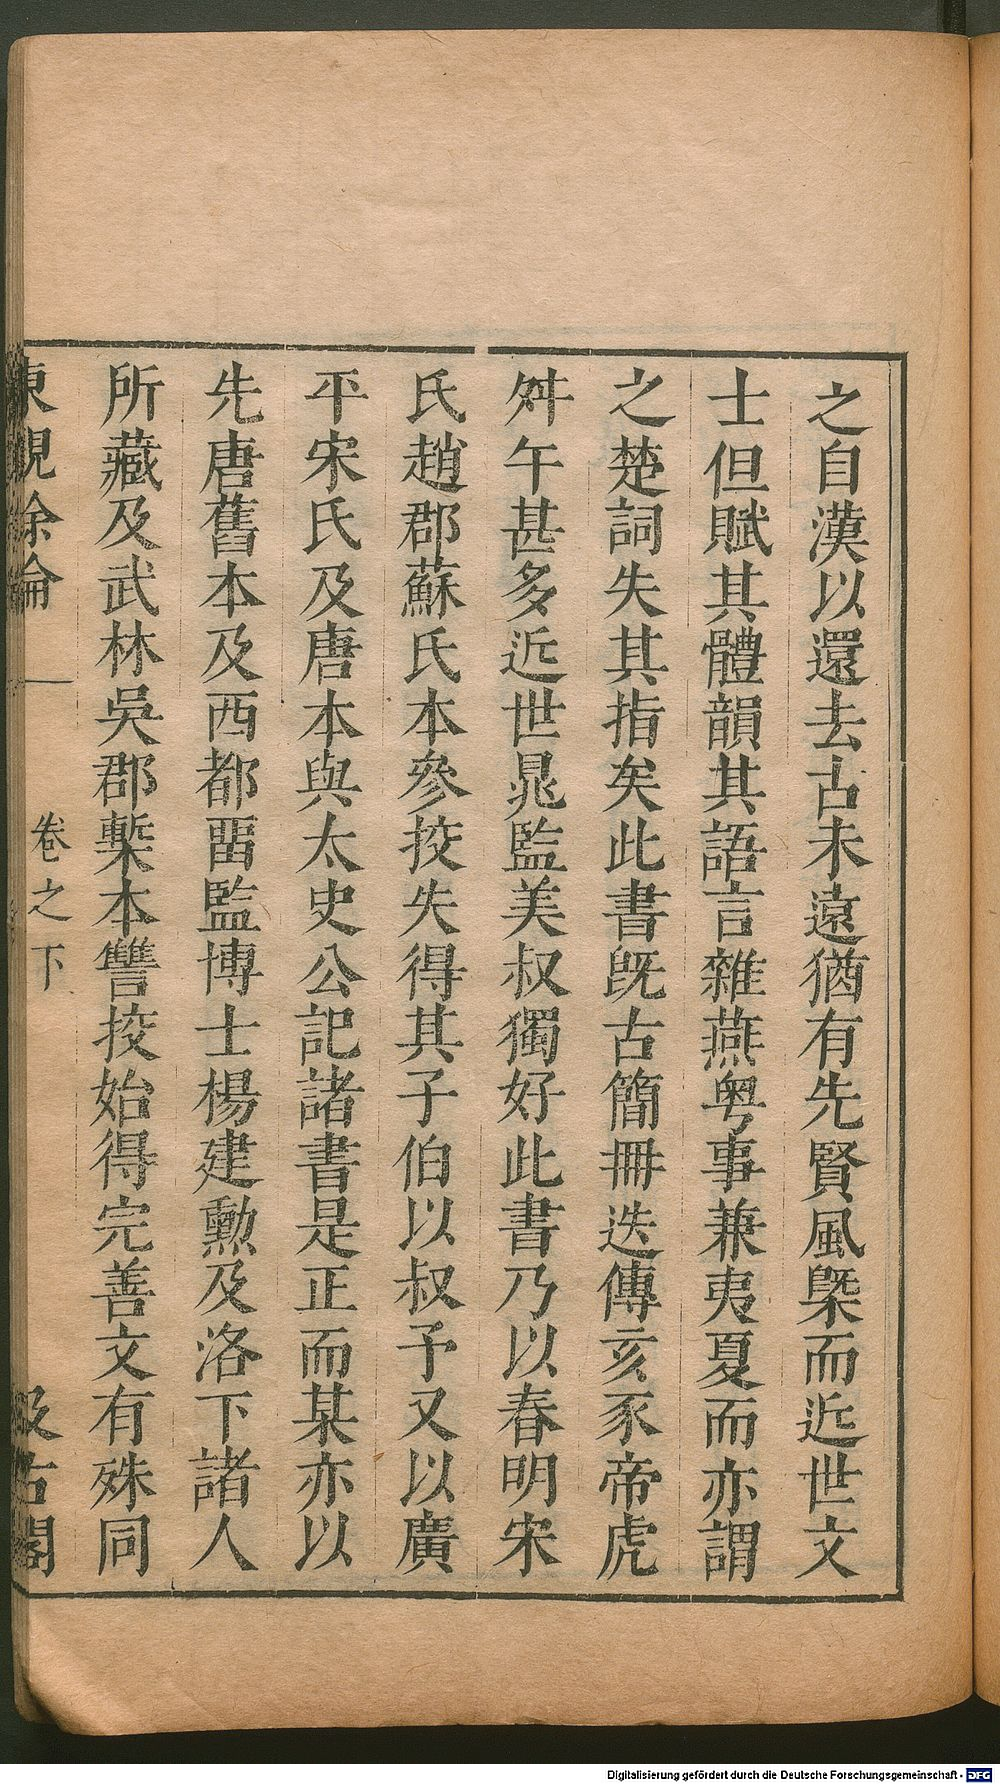 之自漢以還去古未遠猶有先賢風槩而近世文
士但賦其體韻其語言雜燕粤事兼夷夏而亦謂
之楚詞失其指矣此書旣古簡冊迭傳亥豕帝虎
舛午甚多近世晁監美叔獨好此書乃以春明宋
氏趙郡蘇氏本參挍失得其子伯以叔予又以廣
平宋氏及唐本與太史公記諸書是正而某亦以
先唐舊本及西都畱監博士楊建勲及洛下諸人
所藏及武林吳郡槧本讐挍始得完善文有殊同
東觀餘論 卷之下 汲古閣
Digitalisierung gefördert durch die Deutsche Forschungsgemeinschaft - DFG